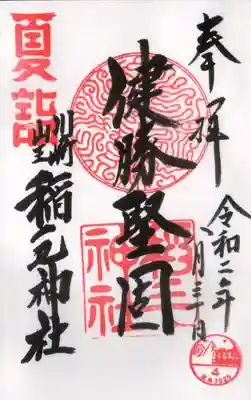 奉拝
令和二年
八月三十日
健勝堅固
夏詣
川崎
山王
稲毛神社
神社
4